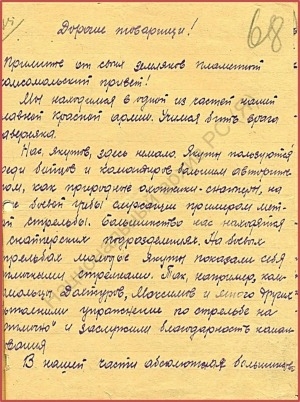 68
Дорогие товарищи!
Примите от своих земляков пламенный
комсомольский привет!
Мы находимся в одной из частей нашей
славной Красной армии. Учимся бить врага
наверняка.
Нас, якутов, здесь немало. Якуты пользуются
среди бойцов и командиров большим авторите-
том, как природные охотники-снайперы, на
все боевой учебы служащим примером мет-
кой стрельбы. Большинство нас находятся
в снайперских подразделениях. На боевых
стрельбах молодые якуты показали себя
отличными стрелками. Так, например, ком-
сомольцы Максимов и много других
выполнили упражнение по стрельбе на
"отлично" и заслужили благодарность коман-
дования
В нашей части абсолютная большинств